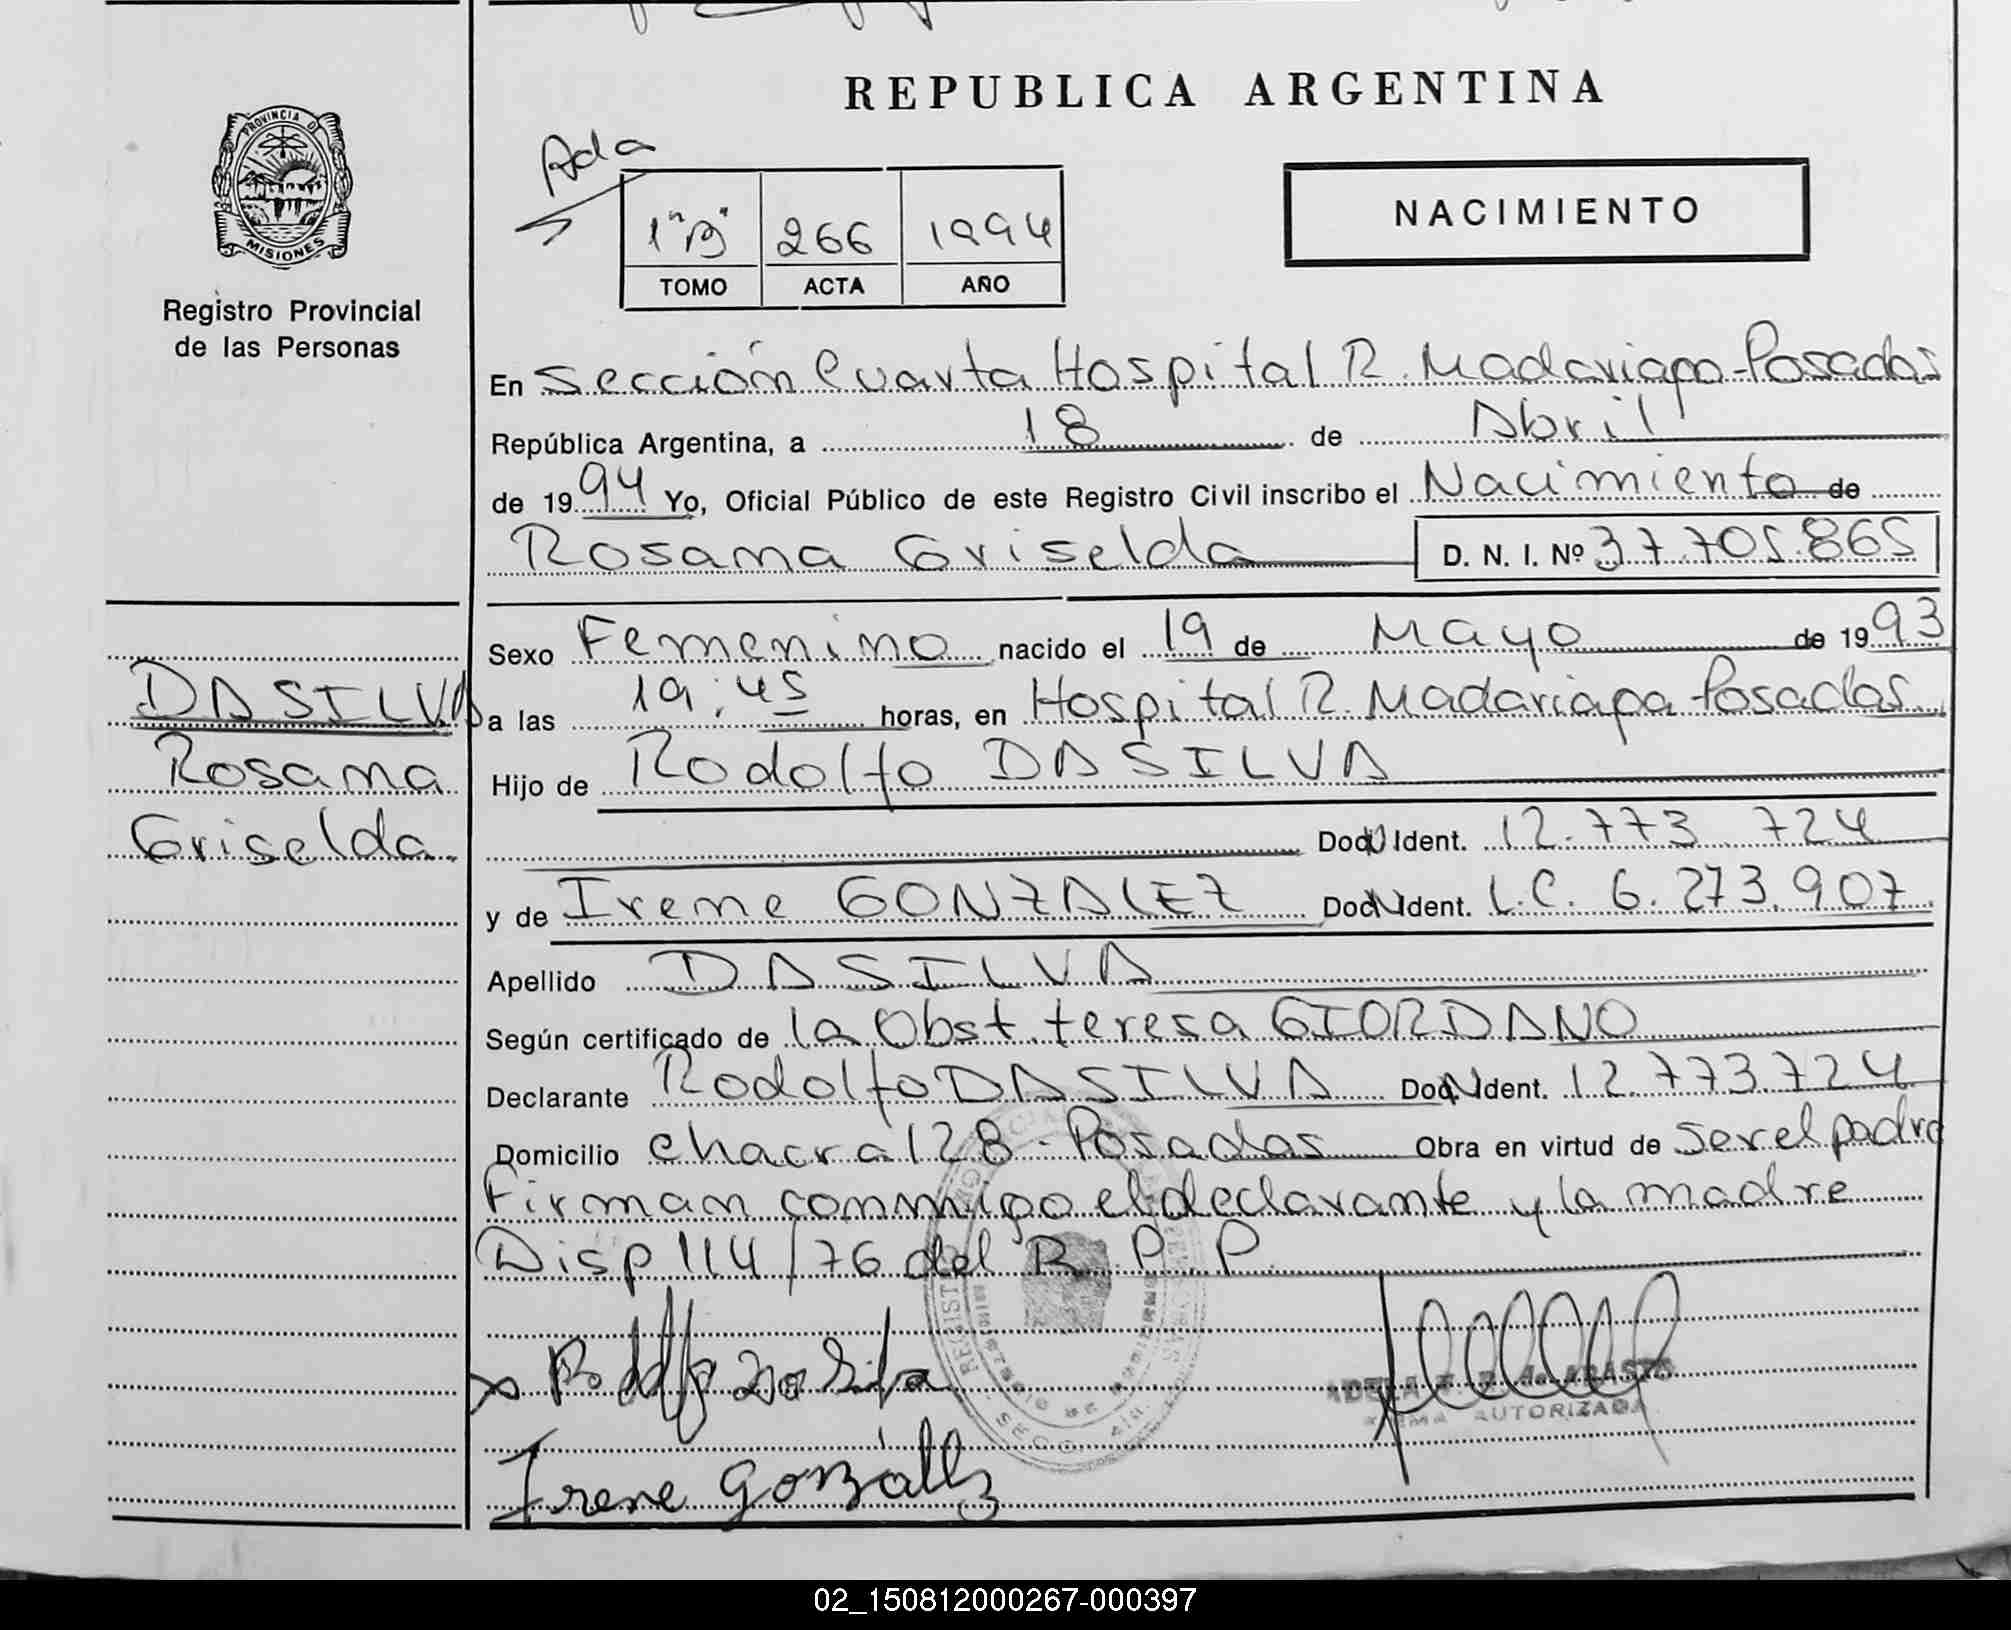 REPUBLICA ARGENTINA
PROVINCIA DE
MISIONES
Registro Provincial
de las Personas
Ada
1"B" 266 1994
TOMO ACTA AÑO
NACIMIENTO
En Sección Cuarta Hospital R. Madariaga-Posadas
República Argentina, a 18 de Abril
de 1994 Yo, Oficial Público de este Registro Civil inscribo el Nacimiento de
Rosana Griselda D. N. I. Nº 37.705.865
Sexo Femenino nacido el 19 de Mayo de 1993
DASILVA
Rosana
Griselda
a las 19:45 horas, en Hospital R. Madariaga-Posadas
Hijo de Rodolfo DASILVA
Doc. Ident. 12.773.724
y de Irene GONZALEZ Doc. Ident. L.C. 6.273.907
Apellido DASILVA
Según certificado de la Obst. teresa GIORDANO
Declarante Rodolfo DASILVA Doc. Ident. 12.773.724
Domicilio chacra 128 - Posadas Obra en virtud de ser el padre
Firman conmigo el declarante y la madre
Disp 114/76 del R. P. P.
x Rodolfo Da Silva
ADELA de ARASTO
FIRMA AUTORIZADA
Irene González
02_150812000267-000397